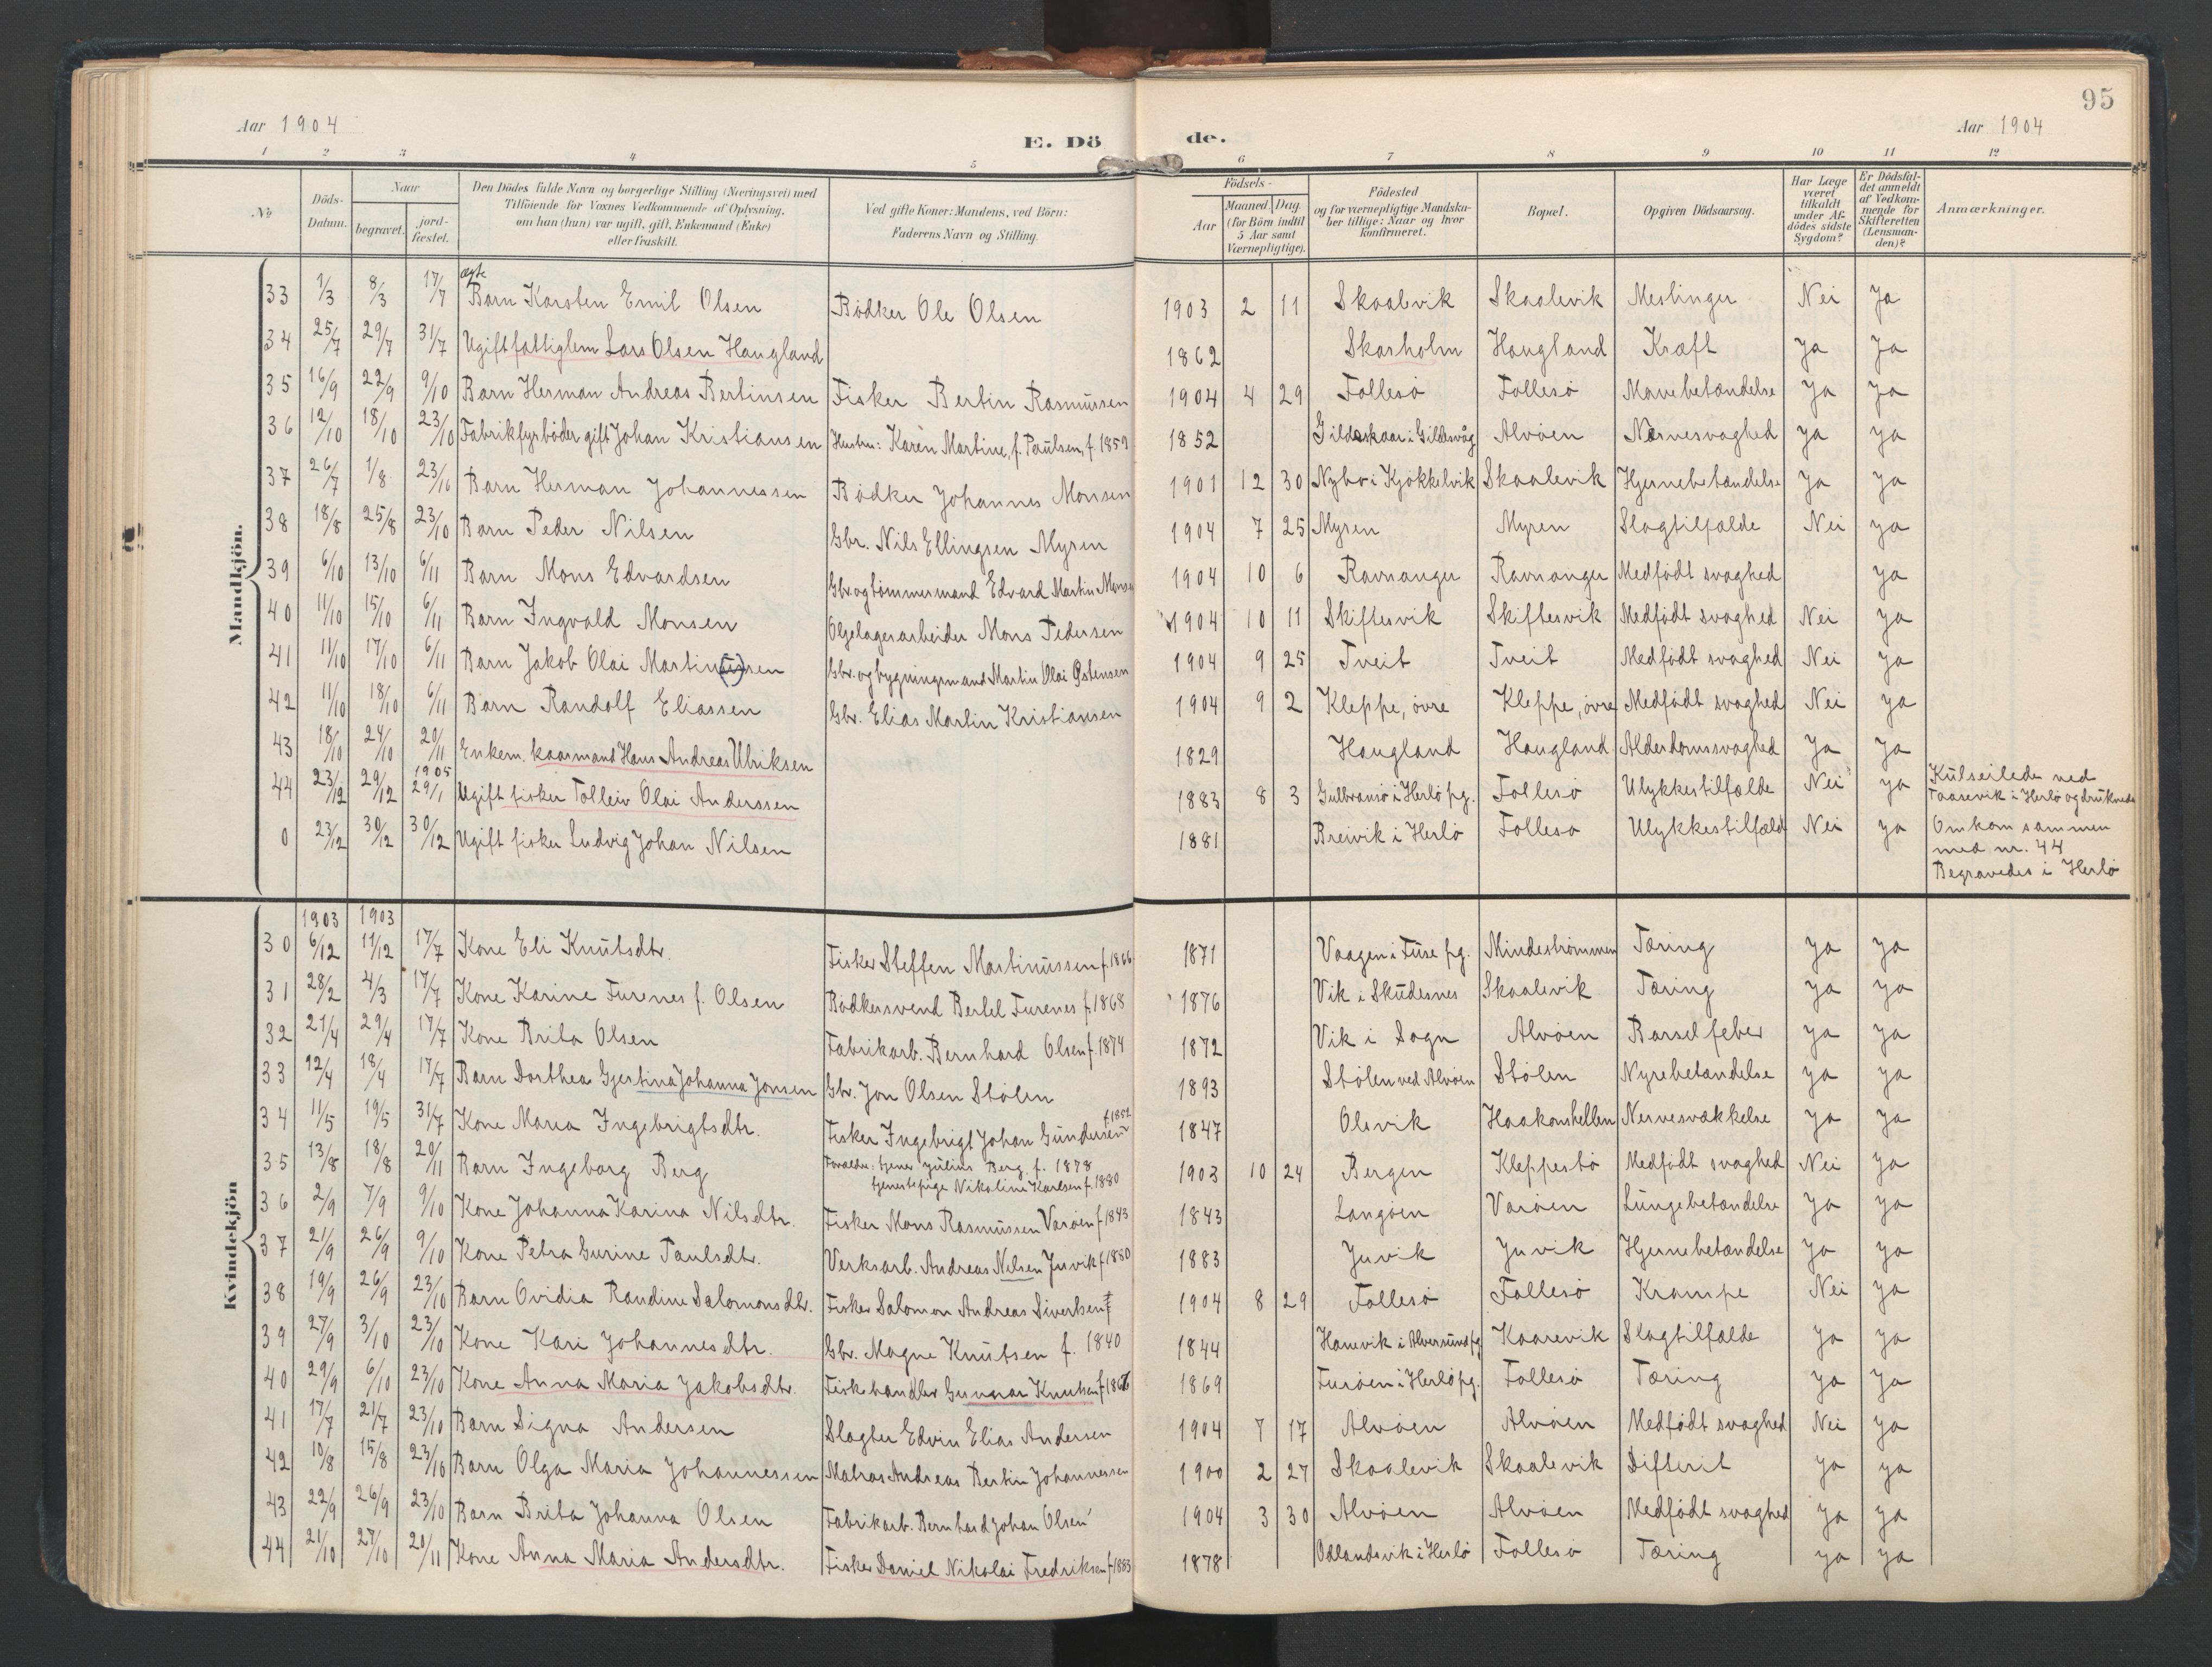 95
Aar 1904
E. Dö de.
Aar 1904
1 2 3 4 5 6 7 8 9 10 11 12
No
Döds-Datum.
Naar
begravet.
jord-fæstet.
Den Dödes fulde Navn og borgerlige Stilling (Næringsvei) med
Tilföiende for Voxnes Vedkommende af Oplysning,
om han (hun) var ugift, gift, Enkemand (Enke)
eller fraskilt.
Ved gifte Koner: Mandens, ved Börn:
Faderens Navn og Stilling.
Födsels-
Aar
Maaned. Dag.
(for Börn indtil
5 Aar samt
Værnepligtige).
Födested
og for værnepligtige Mandska-
ber tillige: Naar og hvor
konfirmeret.
Bopæl.
Opgiven Dödsaarsag.
Har Læge
været
tilkaldt
under Af-
dödes sidste
Sygdom?
Er Dödsfal-
det anmeldt
af Vedkom-
mende for
Skifteretten
(Lensman-
den)?
Anmærkninger.
Mandkjön.
33 1/3 8/3 17/7 ægte Barn Karsten Emil Olsen Bødker Ole Olsen 1903 2 11 Skaalevik Skaalevik Meslinger Nei Ja
34 25/7 29/7 31/7 Ugift fattiglem Lars Olsen Haugland 1862 Skarholm Haugland Kræft Ja Ja
35 16/9 22/9 9/10 Barn Herman Andreas Bertinsen Fisker Bertin Rasmussen 1904 4 29 Follesø Follesø Mavebetændelse Ja Ja
36 12/10 18/10 23/10 Fabrikfyrbøder gift Johan Kristiansen Hustru: Karen Martine, f. Paulsen, f. 1859 1852 Gildeskaar i Gildesvåg Alvøen Nervesvaghed Ja Ja
37 26/7 1/8 23/10 Barn Herman Johannessen Bødker Johannes Monsen 1901 12 30 Nybø i Kjøkkelvik Skaalevik Hjernebetændelse Ja Ja
38 18/8 25/8 23/10 Barn Peder Nilsen Gbr. Nils Ellingsen Myren 1904 7 25 Myren Myren Slagtilfælde Nei Ja
39 6/10 13/10 6/11 Barn Mons Edvardsen Gbr. og tømmermand Edvard Martin Monsen 1904 10 6 Ravnanger Ravnanger Medfødt svaghed Ja
40 11/10 15/10 6/11 Barn Ingvald Monsen Oljelagerarbeider Mons Pedersen 1904 10 11 Skiftesvik Skiftesvik Medfødt svaghed Nei Ja
41 11/10 17/10 6/11 Barn Jakob Olai Martin(us)sen Gbr. og bygningsmand Martin Olai Østensen 1904 9 25 Tveit Tveit Medfødt svaghed Nei Ja
42 11/10 18/10 6/11 Barn Randolf Eliassen Gbr. Elias Martin Kristiansen 1904 9 2 Kleppe, øvre Kleppe, øvre Medfødt svaghed Nei Ja
43 18/10 24/10 20/11 Enkem. kaarmand Hans Andreas Ulriksen 1829 Haugland Haugland Alderdomssvaghed Ja Ja
44 23/12 29/12 1905 29/1 Ugift fisker Tolleiv Olai Anderssen 1883 8 3 Gulbransø i Herlø pg. Follesø Ulykkestilfælde Nei Ja Kulseilede ved
Taasevik i Herlø og druknede
0 23/12 30/12 30/12 Ugift fisker Ludvig Johan Nilsen 1881 Breivik i Herlø Follesø Ulykkestilfælde Nei Ja Omkom sammen
med nr. 44
Begravedes i Herlø
Kvindekjön
1903 1903
30 6/12 11/12 17/7 Kone Eli Knutsdtr. Fisker Steffen Martinussen f. 1866 1871 Vaagen i Fuse pg. Mindestrømmen Tæring Ja Ja
31 28/2 4/3 17/7 Kone Karine Furenes f. Olsen Bødkersvend Bertel Furenes f. 1868 1876 Vik i Skudesnes Skaalevik Tæring Ja Ja
32 21/4 29/4 17/7 Kone Brita Olsen Fabrikarb. Bernhard Olsen f. 1874 1872 Vik i Sogn Alvøen Barselfeber Ja Ja
33 12/4 18/4 17/7 Barn Dorthea Gjertina Johanna Jonsen Gbr. Jon Olsen Stølen 1893 Stølen ved Alvøen Stølen Nyrebetændelse Ja Ja
34 11/5 19/5 31/7 Kone Maria Ingebrigtsdtr. Fisker Ingebrigt Johan Gundersen f. 1852 1847 Olsvik Haakonshellen Nervesvækkelse Ja Ja
35 13/8 18/8 20/11 Barn Ingeborg Berg Forældre: tjener Julius Berg f. 1878
tjenestepige Nikoline Karlsen f. 1880 1903 10 24 Bergen Kleppestø Medfødt svaghed Nei Ja
36 2/9 7/9 9/10 Kone Johanna Karina Nilsdtr. Fisker Mons Rasmussen Varøen f. 1843 1843 Langøen Varøen Lungebetændelse Ja Ja
37 21/9 26/9 9/10 Kone Petra Gurine Paulsdtr. Verksarb. Andreas Nilsen Juvik f. 1880 1883 Juvik Juvik Hjernebetændelse Ja Ja
38 19/9 26/9 23/10 Barn Ovidia Randine Salomonsdtr. Fisker Salomon Andreas Sivertsen 1904 8 29 Follesø Follesø Krampe Nei Ja
39 27/9 3/10 23/10 Kone Kari Johannesdtr. Gbr. Magne Knutsen f. 1840 1844 Hanevik i Alversund pg Kaarevik Slagtilfælde Ja Ja
40 29/9 6/10 23/10 Kone Anna Maria Jakobsdtr. Fiskehandler Gunnar Knutsen 1869 Furøen i Herlø pg. Follesø Tæring Ja Ja
41 17/7 21/7 23/10 Barn Signa Andersen Slagter Edvin Elias Andersen 1904 7 17 Alvøen Alvøen Medfødt svaghed Nei Ja
42 10/8 15/8 23/10 Barn Olga Maria Johannessen Matros Andreas Bertin Johannessen 1900 2 27 Skaalevik Skaalevik Difterit Ja Ja
43 22/9 26/9 23/10 Barn Brita Johanna Olsen Fabrikarb. Bernhard Johan Olsen 1904 3 30 Alvøen Alvøen Medfødt svaghed Ja Ja
44 21/10 27/10 20/11 Kone Anna Maria Andersdtr. Fisker Daniel Nikolai Fredriksen f. 1883 1878 Odlandsvik i Herlø Follesø Tæring Ja Ja